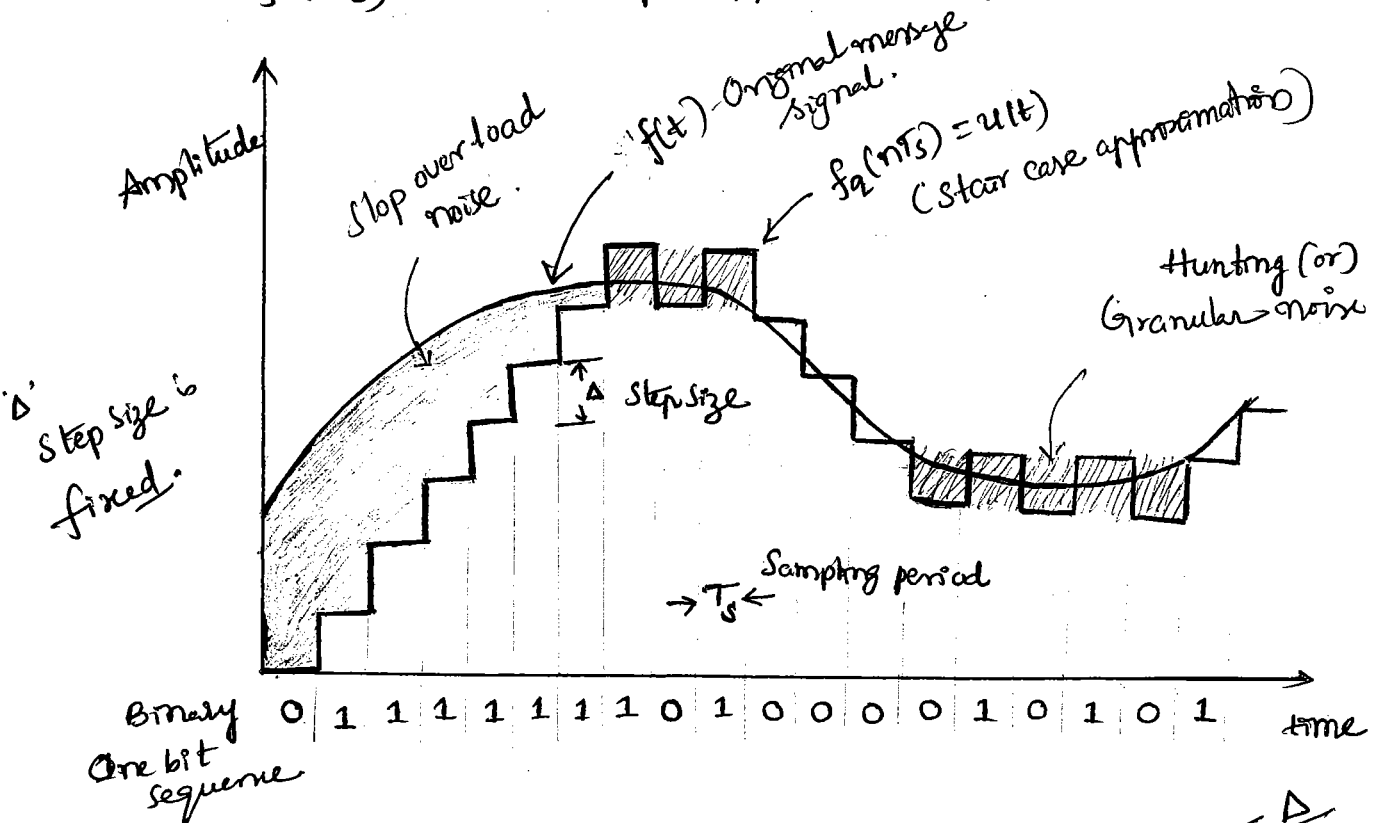 Amplitude
Slop over load
noise.
f(t) - Original message
signal.
fq(nTs) = u(t)
(Stair case approximation)
Hunting (or)
Granular noise
'Δ'
Step size is
fixed.
Δ Step size
Sampling period
Ts
Binary 0 1 1 1 1 1 1 1 0 1 0 0 0 0 1 0 1 0 1 time
One bit
sequence.
Δ